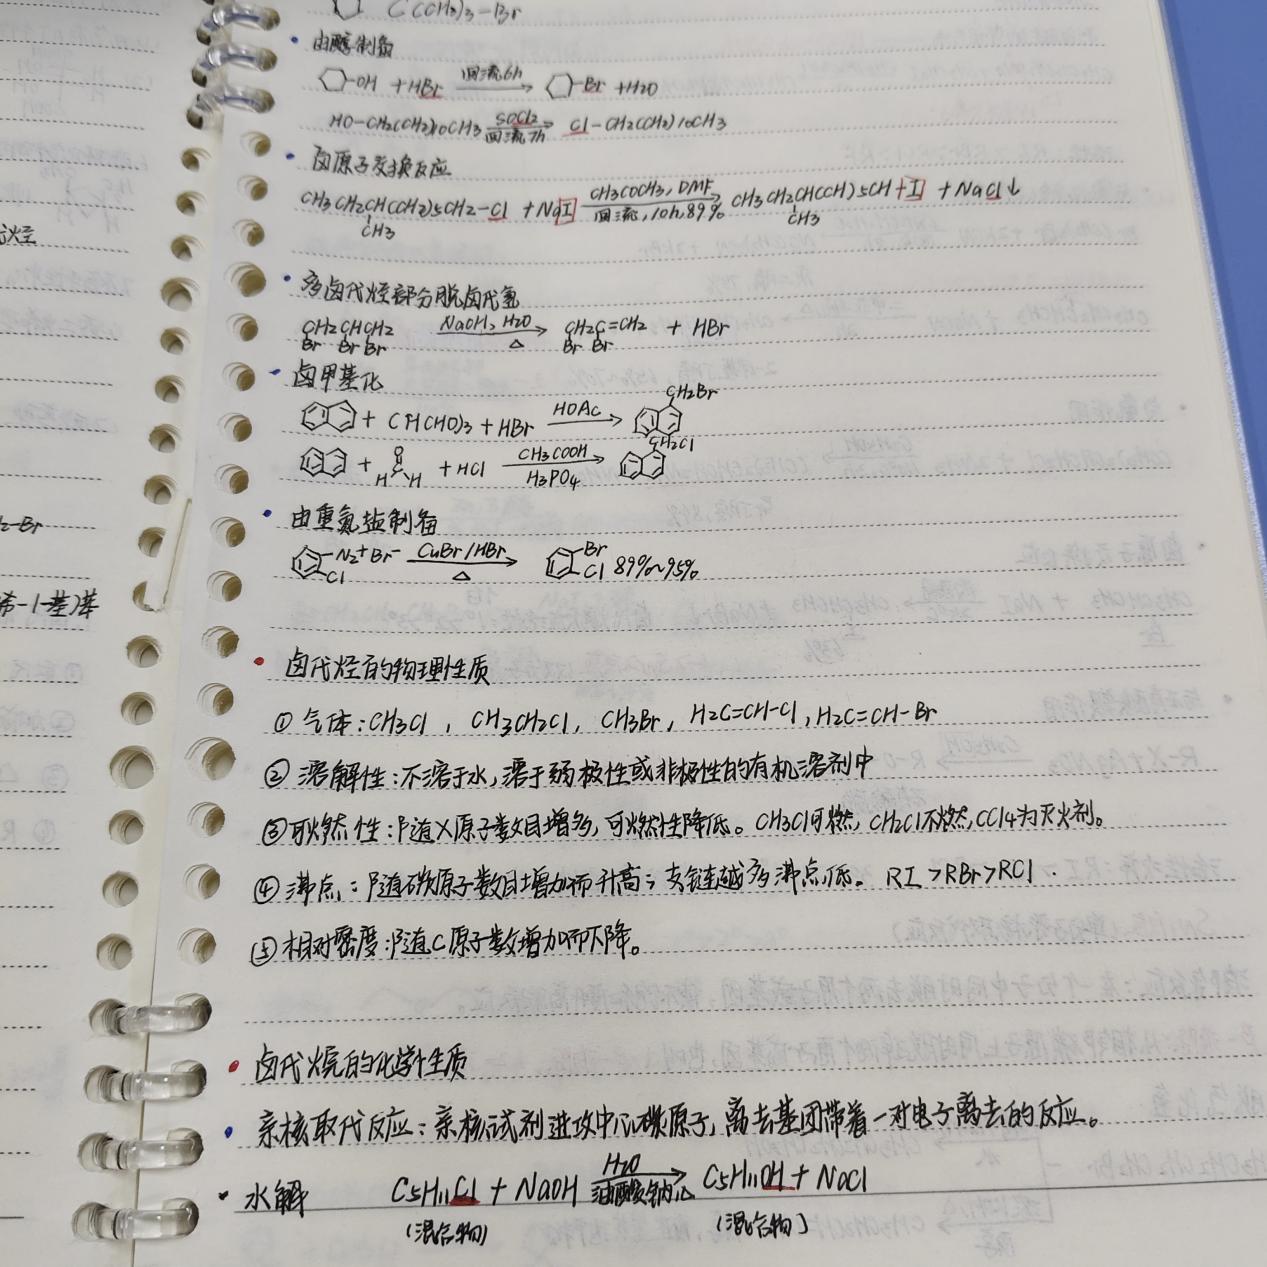 C(CH3)3-Br
由醇制备
-OH + HBr 回流6h -Br +H2O
HO-CH2(CH2)10CH3 SOCl2 回流7h Cl-CH2(CH2)10CH3
卤原子交换反应
CH3CH2CH(CH2)5CH2-Cl + NaI CH3COCH3, DMF 回流,10h,89% CH3CH2CH(CH)5CH+I + NaCl↓
CH3 CH3
多卤代烃部分脱卤代氢
CH2CHCH2 NaOH, H2O △ CH2C=CH2 + HBr
Br Br Br Br Br
卤甲基化
+ C(H(CHO)3 + HBr HOAc CH2Br
+ O H H + HCl CH3COOH H3PO4 CH2Cl
由重氮盐制备
N2+Br- Cl CuBr/HBr △ Br Cl 89%~95%
卤代烃的物理性质
①气体:CH3Cl, CH3CH2Cl, CH3Br, H2C=CH-Cl, H2C=CH-Br
②溶解性:不溶于水,溶于弱极性或非极性的有机溶剂中
③可燃性:随X原子数目增多,可燃性降低。CH3Cl可燃, CH2Cl不燃,CCl4为灭火剂。
④沸点:随碳原子数目增加而升高;支链越多沸点低。 RI>RBr>RCl.
⑤相对密度:随C原子数增加而下降。
卤代烷的化学性质
亲核取代反应:亲核试剂进攻中心碳原子,离去基团带着一对电子离去的反应。
水解 C5H11Cl + NaOH H2O 油酸钠△ C5H11OH + NaCl
(混合物) (混合物)
烃
2-Br
希-1-基)苯